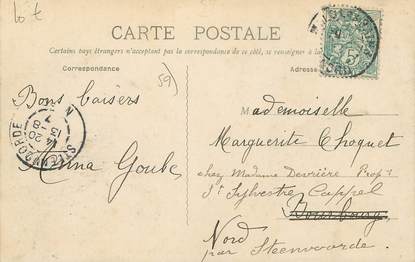 CARTE POSTALE
Certains pays étrangers n'acceptant pas la correspondance de ce côté, se renseigner à la
Correspondance
Adresse
59)
Bons baisers
Anna Goube
Mademoiselle
Marguerite Choquet
chez Madame Devrière Prop:
St Sylvestre Cappel
Nord
par Steenvoorde.
STEENVOORDE
NORD
5